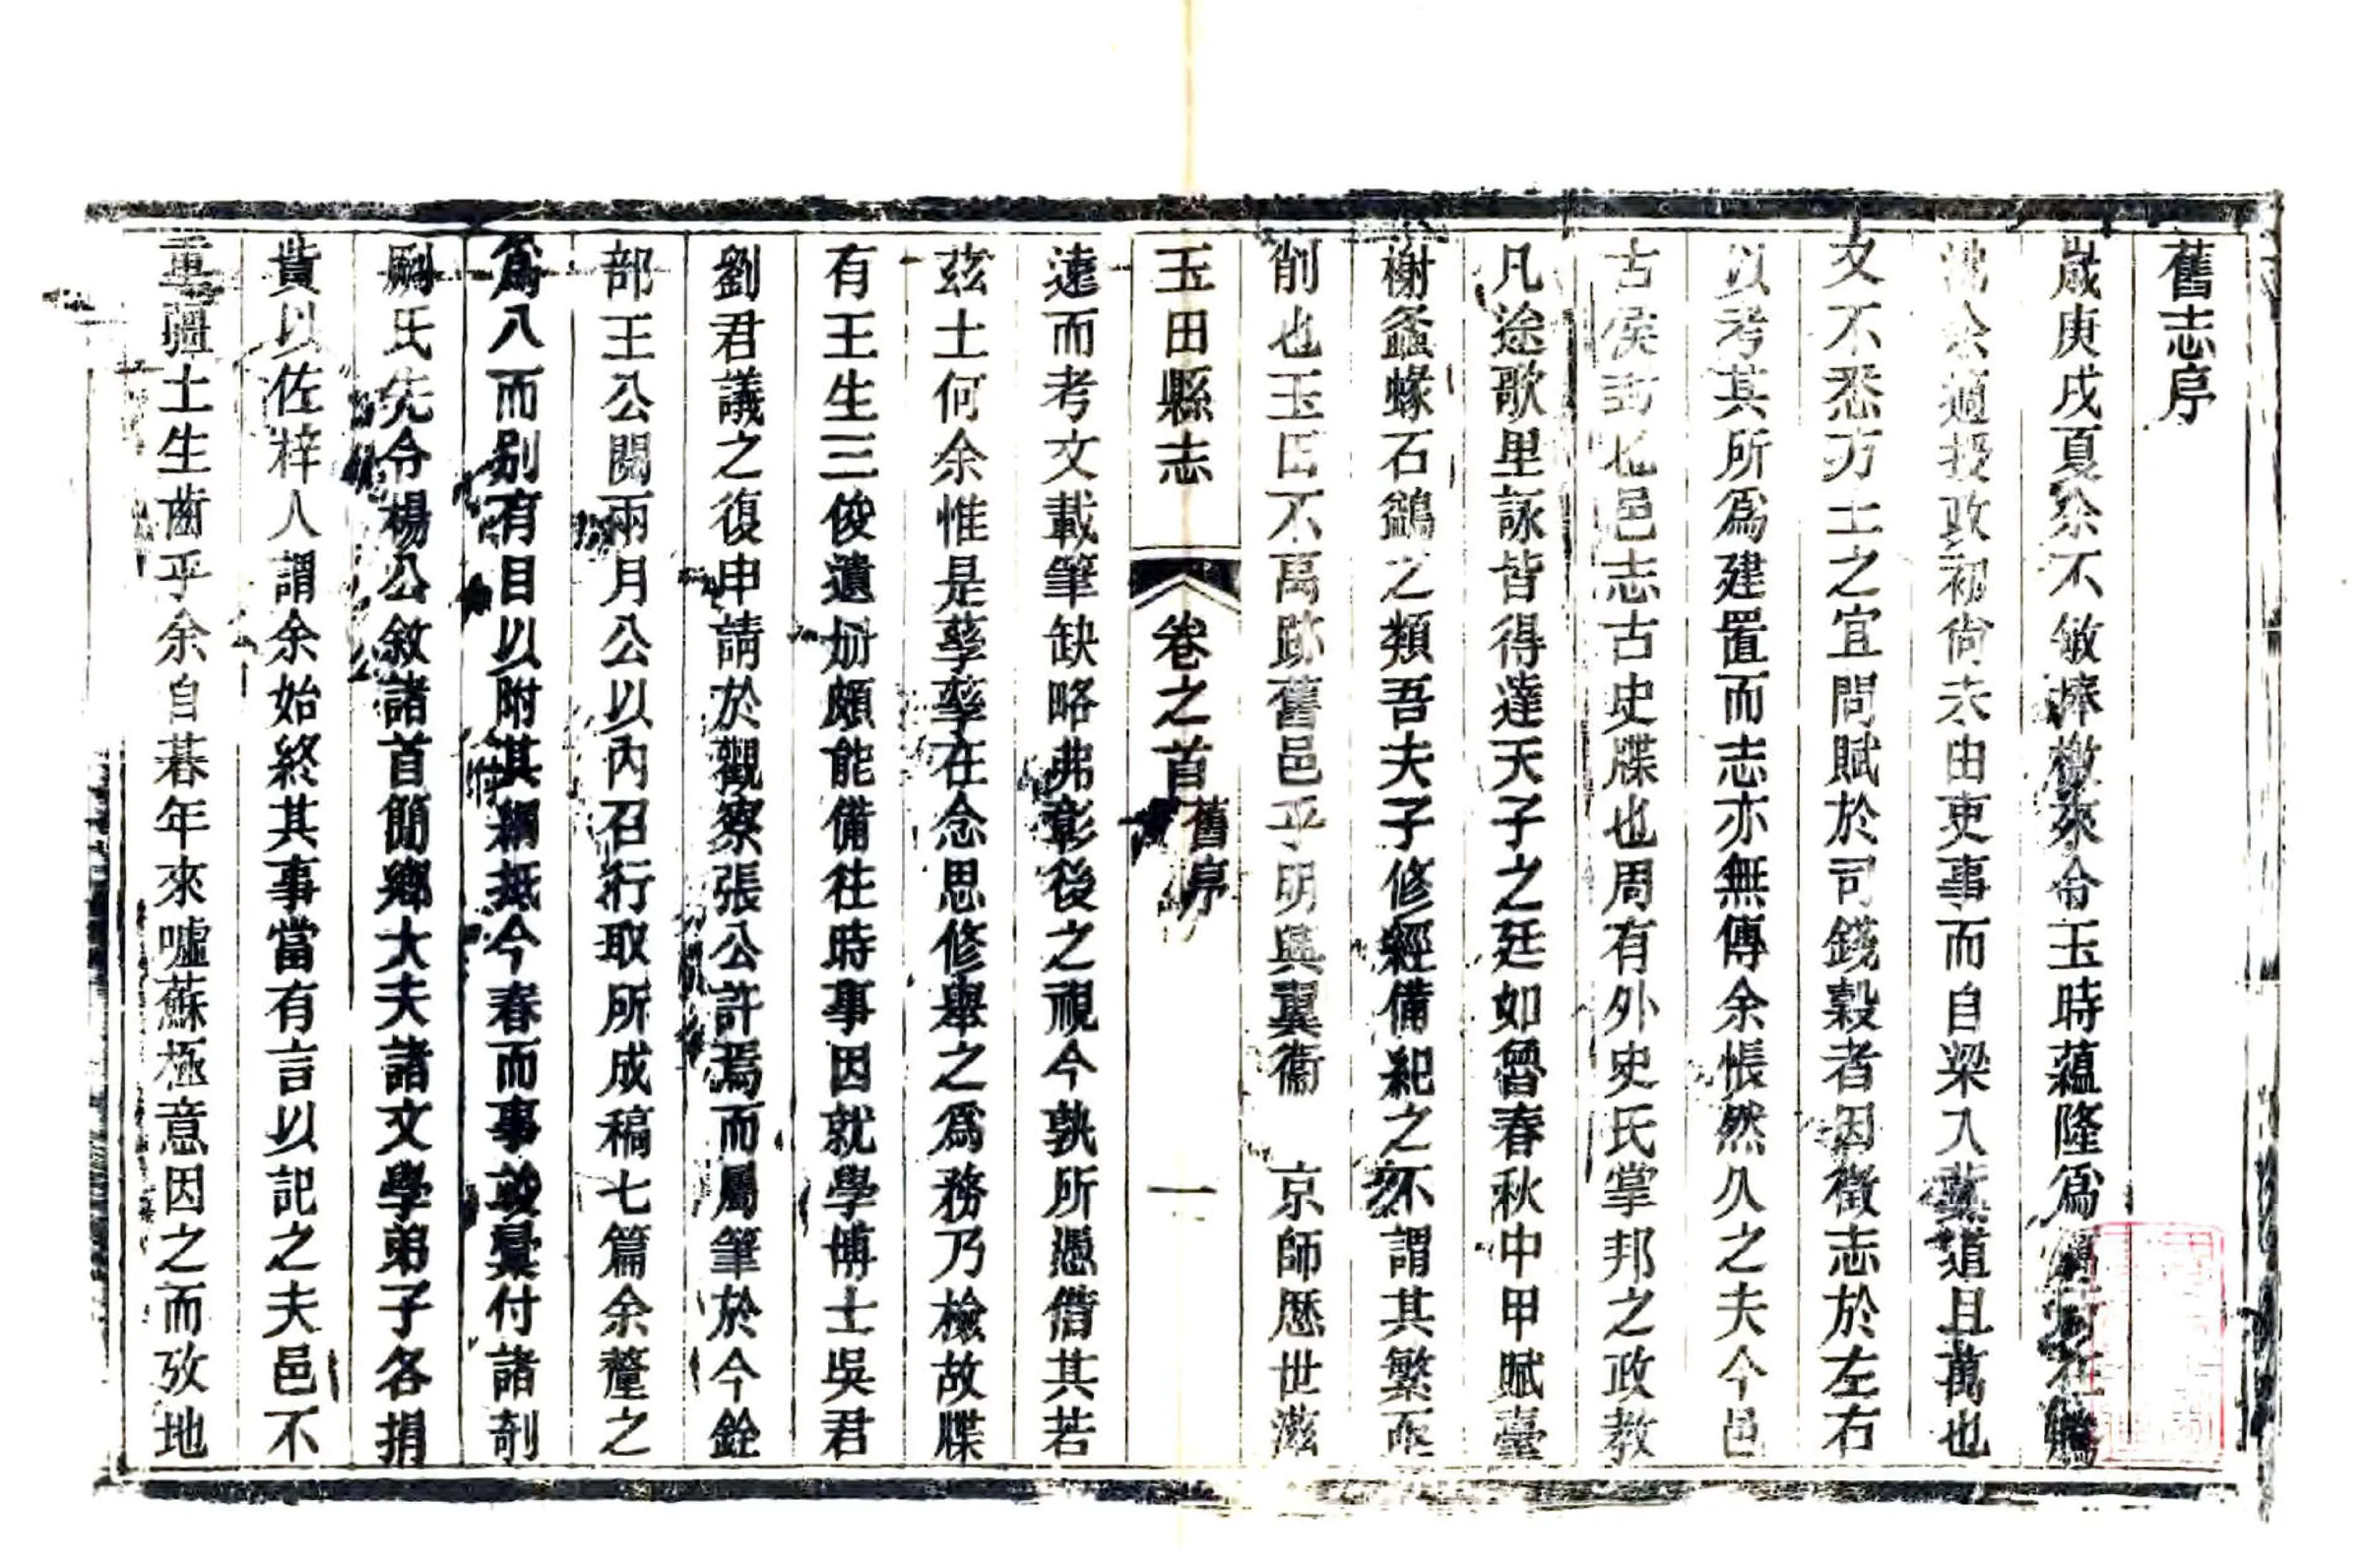 舊志序
歲庚戌夏余不敏捧檄來令玉時蘊隆爲在
余適授政初尙未由吏事而自梁入薊道且萬也
又不悉方土之宜問賦於司錢穀者因徵志於左右
以考其所爲建置而志亦無傳余悵然久之夫今邑
古侯封也邑志古史牒也周有外史氏掌邦之政教
凡途歌里詠皆得達天子之廷如魯春秋中甲賦臺
榭螽蝝石鷁之類吾夫子修經備紀之不謂其繁而
削也玉田不禹跡舊邑乎明興翼衞 京師歷世滋
玉田縣志 卷之首 舊序 一
遠而考文載筆缺略弗彰後之視今孰所憑借其若
茲土何余惟是孳孳在念思修舉之爲務乃檢故牒
有王生三俊遺册頗能備往時事因就學博士吳君
劉君議之復申請於觀察張公許焉而屬筆於今銓
部王公閱兩月公以內召行取所成稿七篇余釐之
爲八而别有目以附其綱抵今春而事竣彙付諸剞
劂氏先令楊公敘諸首簡鄉大夫諸文學弟子各捐
貲以佐梓人謂余始終其事當有言以記之夫邑不
重疆土生齒乎余自朞年來噓蘇極意因之而攷地